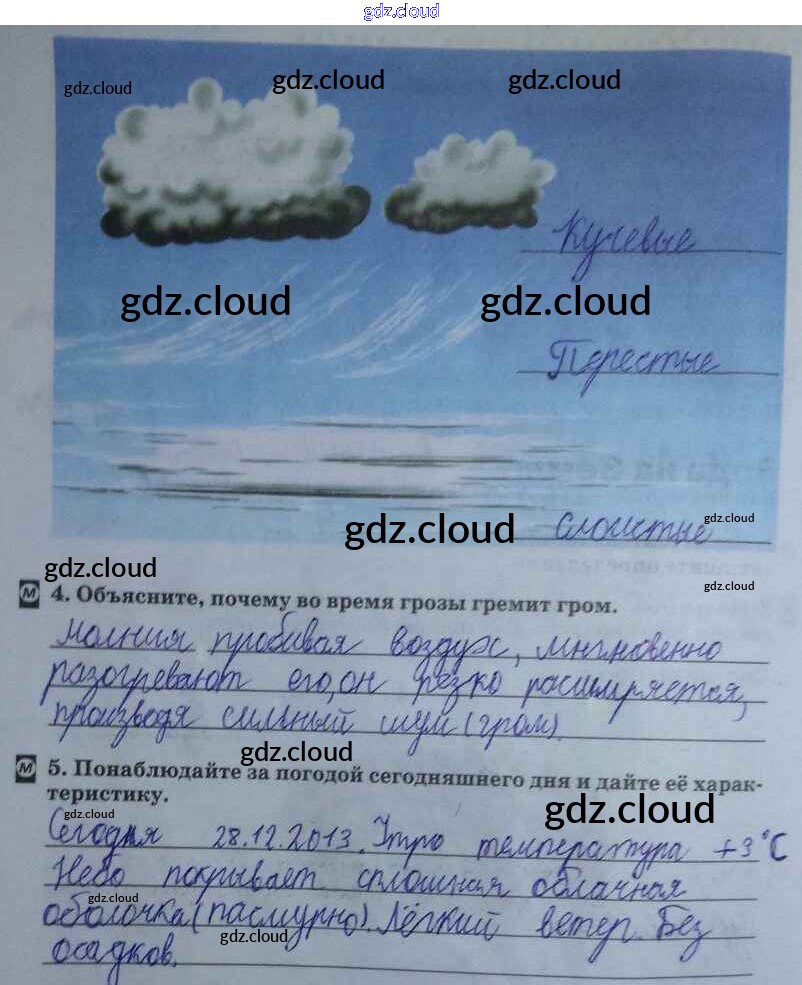 gdz.cloud
gdz.cloud
gdz.cloud
gdz.cloud
Кучевые
gdz.cloud
gdz.cloud
Перестые
gdz.cloud
gdz.cloud
слоистые
gdz.cloud
gdz.cloud
М 4. Объясните, почему во время грозы гремит гром.
Молния пробивая воздух, мгновенно
разогревают его, он резко расширяется,
производя сильный шум (гром)
gdz.cloud
М 5. Понаблюдайте за погодой сегодняшнего дня и дайте её харак-
теристику.
gdz.cloud
gdz.cloud
Сегодня 28.12.2013. Утро температура +3°C
Небо покрывает сплошная облачная
gdz.cloud
оболочка (пасмурно). Лёгкий ветер. Без
gdz.cloud
осадков.